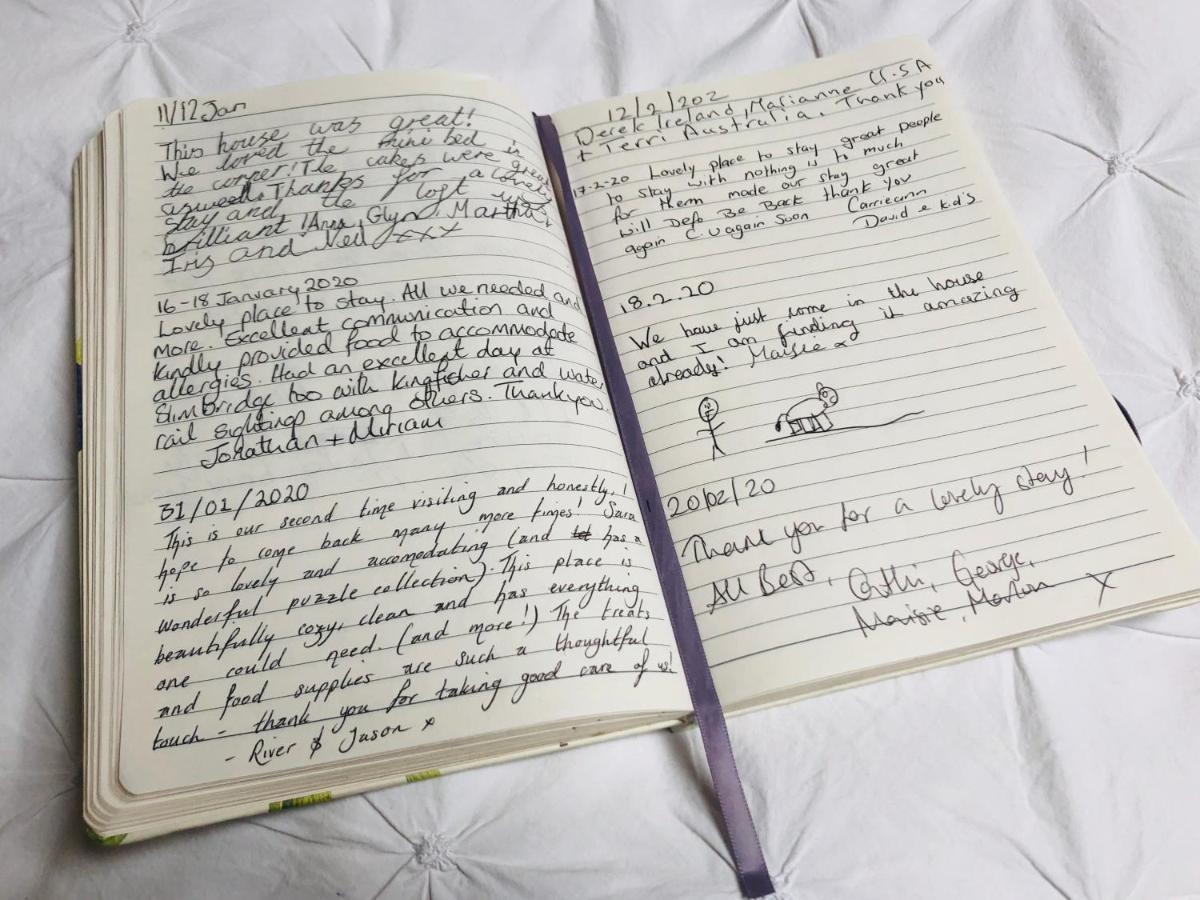 11/12 Jan
This house was great!
We loved the mini bed in
the corner! The cakes were great
aswell. Thanks for a lovely
stay and the loft was
brilliant! Anna, Glyn, Martha,
Iris and Neil xxx
16-18 January 2020
Lovely place to stay. All we needed and
more. Excellent communication and
kindly provided food to accommodate
allergies. Had an excellent day at
Slimbridge too with kingfisher and water
rail sightings among others. Thankyou.
Jonathan + Miriam
31/01/2020
This is our second time visiting and honestly, I
hope to come back many more times! Sara
is so lovely and accomodating (and has a
wonderful puzzle collection). This place is
beautifully cozy, clean and has everything
one could need. (and more!) The treats
and food supplies are such a thoughtful
touch - thank you for taking good care of us!
- River & Jason x
12/2/202
Derek Ireland, Marianne U.S.A
+ Terri Australia. Thank you
17-2-20 Lovely place to stay great people
to stay with nothing is to much
for them made our stay great
will Defo Be Back thank you
again C.U again Soon Carrieann
David & kid's
18.2.20
We have just come in the house
and I am finding it amazing
already! Maisie x
20/02/20
Thank you for a lovely stay!
All Best, George,
Maisie, x